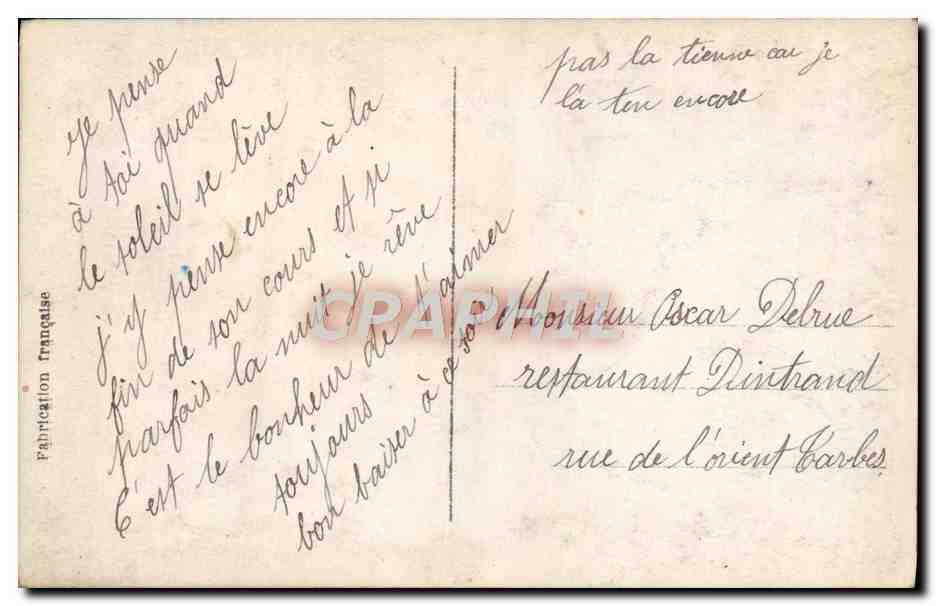 je pense
à toi quand
le soleil se lève
j'y pense encore à la
fin de son cours et si
parfois la nuit je rêve
C'est le bonheur de t'aimer
toujours
bon baiser à ce soir
pas la tienne car je
l'a ten encore
Monsieur Oscar Delrue
restaurant Dintrand
rue de l'orient Tarbes
Fabrication française
CARAPHIL